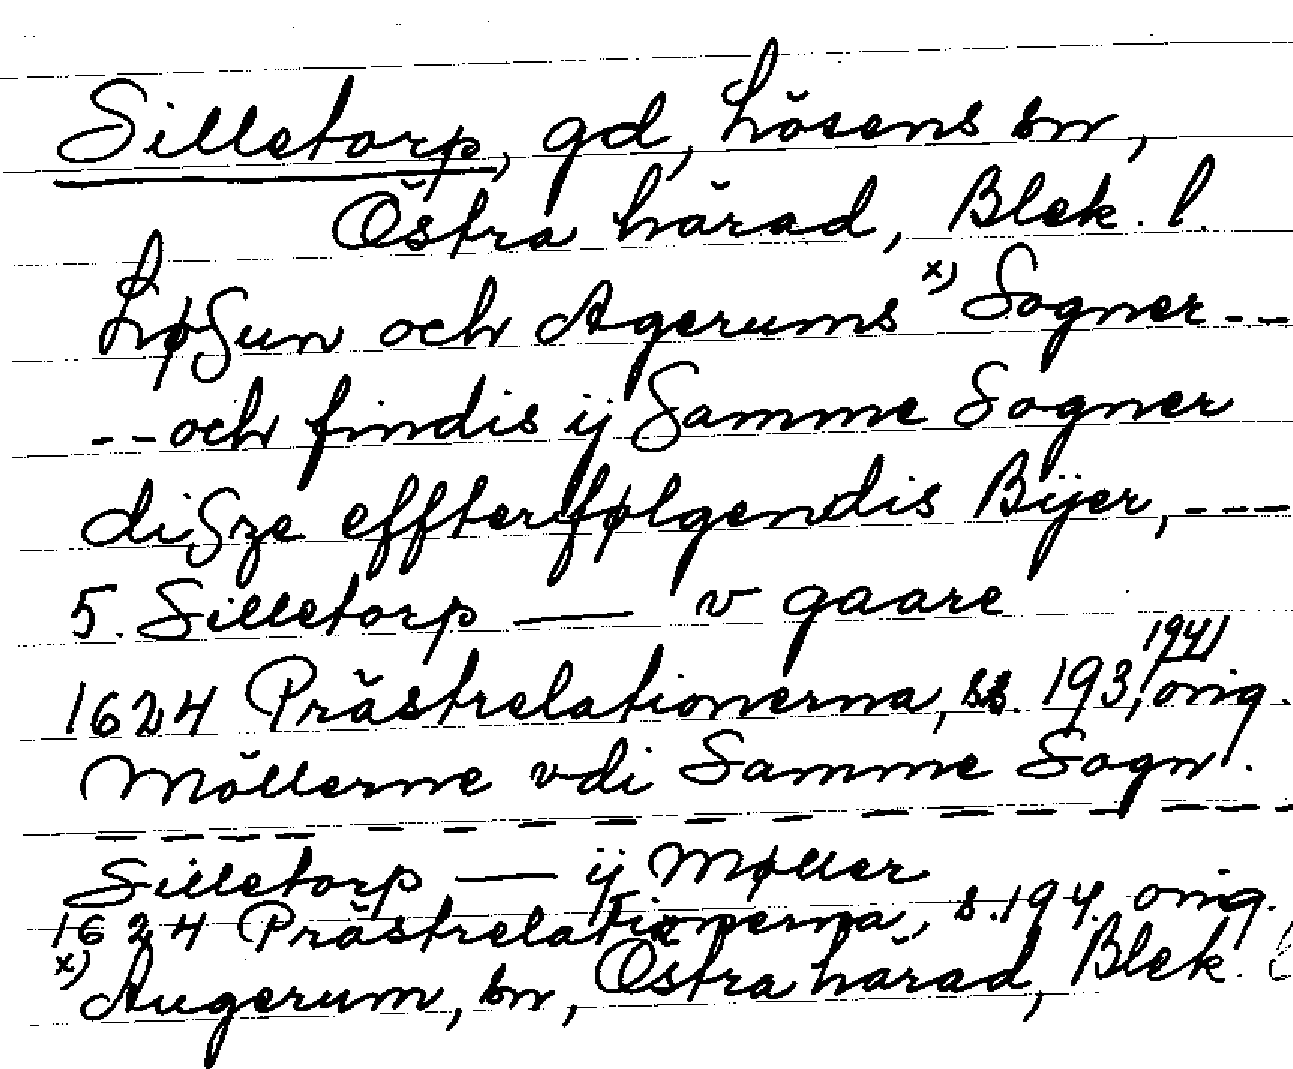 Silletorp, gd, Lösens sn,
Östra härad, Blek. l.
LøSun och Agerums x) Sogner --
-- och findis ij Samme Sogner
diSze effterfølgendis Bijer, ---
5. Silletorp — v gaare
1624 Prästrelationerna, ss. 193, 194, orig.
Möllerne vdi Samme Sogn.
Silletorp — ij Møller
1624 Prästrelationerna, s. 194. orig.
x) Augerum, sn, Östra härad, Blek. l